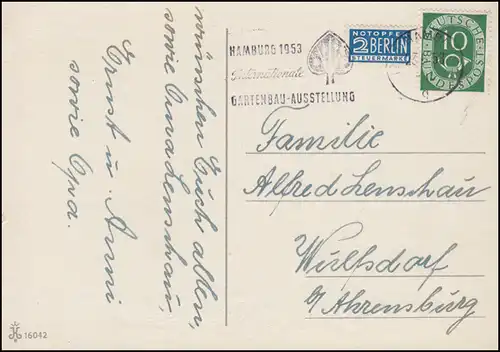 wünschen Euch allen,
sowie Oma Lenschau,
Ernst u. Anni
sowie Opa.
16042
HAMBURG 1953
Internationale
GARTENBAU-AUSSTELLUNG
NOTOPFER
2 BERLIN
STEUERMARKE
DEUTSCHE
10
BUNDESPOST
Familie
Alfred Lenschau
Wulfsdorf
b/Ahrensburg